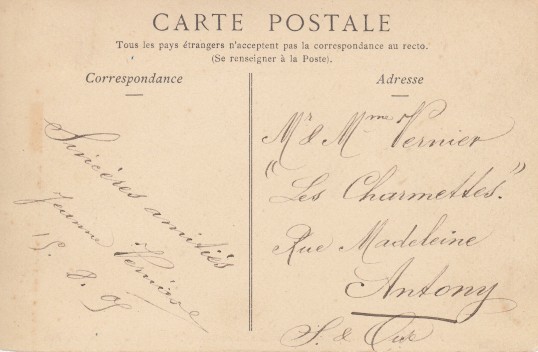 CARTE POSTALE
Tous les pays étrangers n'acceptent pas la correspondance au recto.
(Se renseigner à la Poste).
Correspondance
Sincères amitiés
Jeanne
15. 8. 05
Adresse
Mr & Mme Vernier
"Les Charmettes."
Rue Madeleine
Antony
S. & Oise